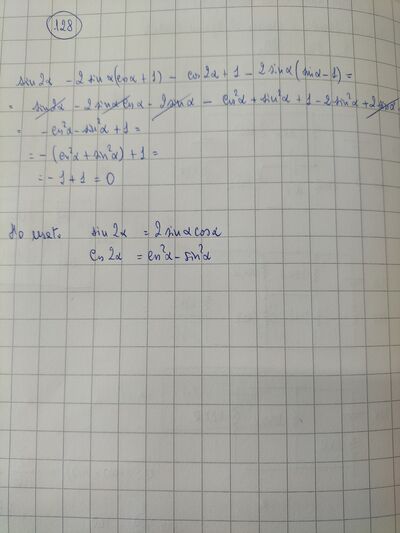 128
sin2α - 2sinα(cosα+1) - cos2α + 1 - 2sinα(sinα-1) =
= sin2α - 2sinαcosα - 2sinα - cos²α + sin²α + 1 - 2sin²α + 2sinα
= -cos²α - sin²α + 1 =
= -(cos²α + sin²α) + 1 =
= -1 + 1 = 0
sin2α = 2sinαcosα
cos2α = cos²α - sin²α